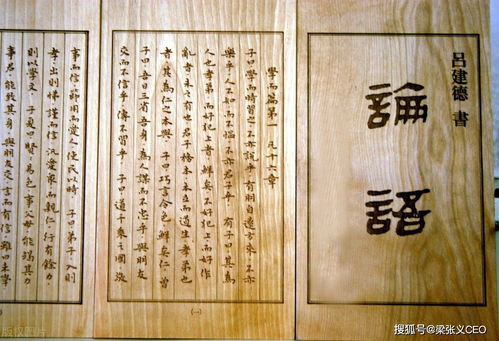 呂建德 書
論語
學而篇第一 凡十六章
子曰學而時習之不亦說乎有朋自遠方來不亦
樂乎人不知而不慍不亦君子乎 有子曰其為
人也孝弟而好犯上者鮮矣不好犯上而好作
亂者未之有也君子務本本立而道生孝弟也
者其為仁之本與 子曰巧言令色鮮矣仁 曾
子曰吾日三省吾身為人謀而不忠乎與朋友
交而不信乎傳不習乎 子曰道千乘之國敬
(一)
事而信節用而愛人使民以時 子曰弟子入則
孝出則悌謹而信汎愛眾而親仁行有餘力
則以學文 子夏曰賢賢易色事父母能竭其力
事君能致其身與朋友交言而有信雖曰未學
版权图片
搜狐号@梁张义CEO